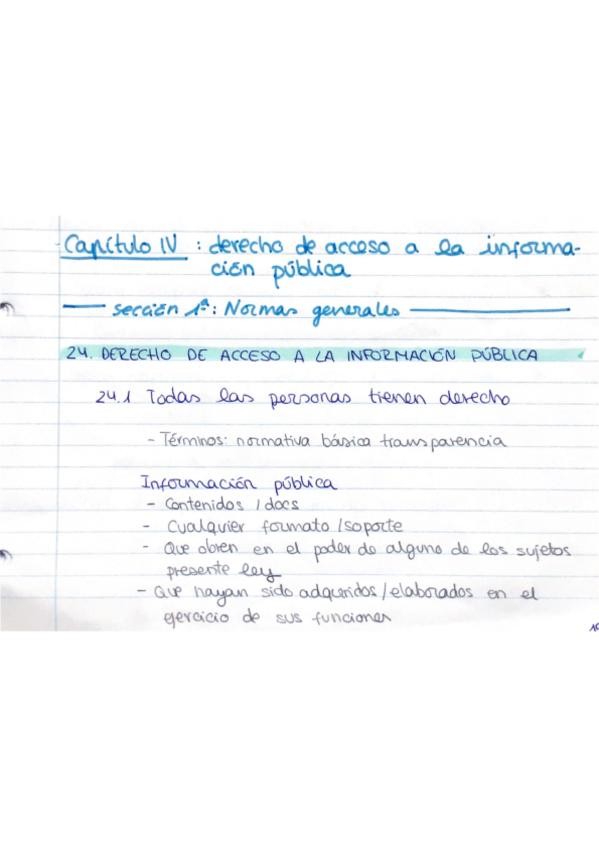 Capítulo IV : derecho de acceso a la informa-
ción pública
Sección 1ª: Normas generales
24. DERECHO DE ACCESO A LA INFORMACIÓN PÚBLICA
24.1 Todas las personas tienen derecho
- Términos: normativa básica transparencia
Información pública
- Contenidos / docs
- Cualquier formato / soporte
- Que obren en el poder de alguno de los sujetos
presente ley
- Que hayan sido adquiridos / elaborados en el
ejercicio de sus funciones